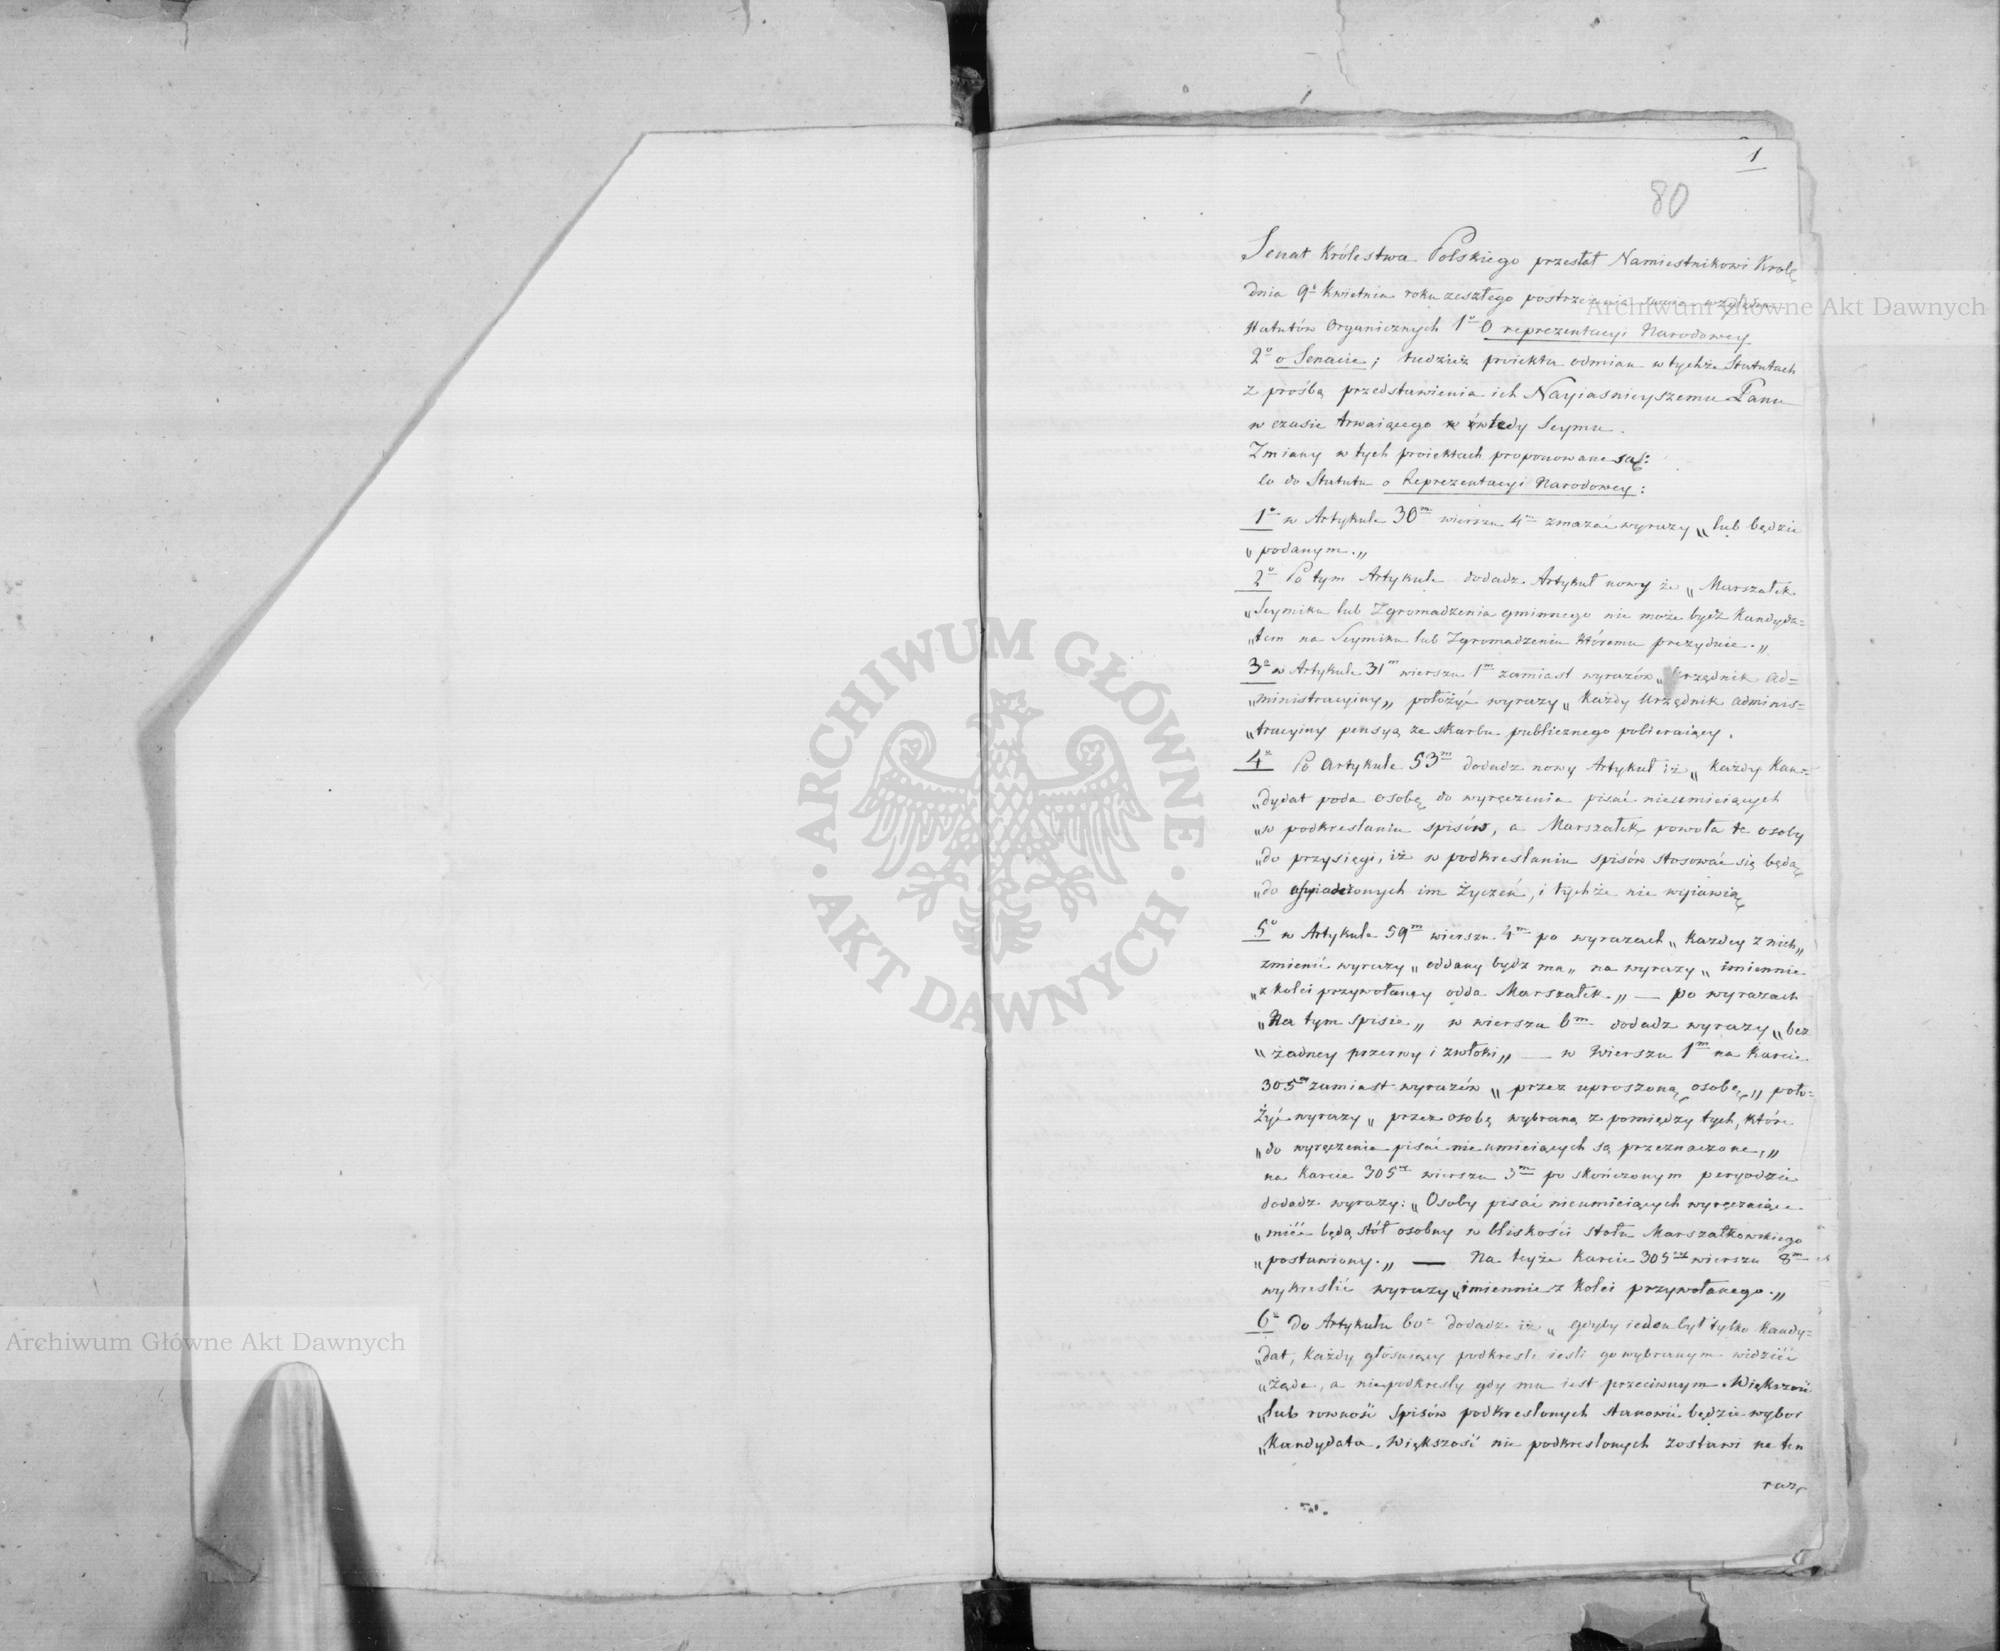 1
80
Senat Królestwa Polskiego przesłał Namiestnikowi Krolę
dnia 9º Kwietnia roku zeszłego postrzeżenia swoie względem
Statutów Organicznych 1º O reprezentacyi Narodowey
2º o Senacie; tudzież proiekta odmian w tychże Statutach
z prośbą przedstawienia ich Nayiaśnieyszemu Panu
w czasie trwaiącego wtedy Seymu.
Zmiany w tych proiektach proponowane są:
Co do Statutu o Reprezentacyi Narodowey:
1º w Artykule 30m wierszu 4m zmazać wyrazy „lub będzie
„podanym.„
2º Po tym Artykule dodadz Artykuł nowy że „Marszałek
„Seymiku lub Zgromadzenia gminnego nie może bydź Kandyda=
„tem na Seymiku lub Zgromadzeniu któremu prezyduie.„
3º w Artykule 31m wierszu 1m zamiast wyrazów „Urzędnik ad=
„ministracyiny„ położyć wyrazy „Każdy Urzędnik adminis=
„tracyiny pensyą ze skarbu publicznego pobieraiący.
4º Po Artykule 53m dodadz nowy Artykuł iż „każdy Kan=
„dydat poda osobę do wyręczenia pisać nieumieiących
„w podkreslaniu spisów, a Marszałek powoła te osoby
„do przysięgi, iż w podkreslaniu spisów stosować się będą
„do oświadczonych im życzeń, i tychże nie wyiawią
5º w Artykule 59m wierszu 4m po wyrazach „Kazdey z nich„
zmienić wyrazy „oddany bydz ma„ na wyrazy „imiennie
„z kolei przywołaney odda Marszałek.„ — po wyrazach
„Na tym spisie„ w wierszu 6m dodadz wyrazy „bez
„żadney przerwy i zwłoki„ — w Wierszu 1m na Karcie
305ey zamiast wyrazów „przez uproszoną osobę„ poło=
żyć wyrazy „przez osobę wybraną z pomiędzy tych, które
„do wyręczenia pisać nieumieiących są przeznaczone,„
na Karcie 305ey wierszu 3m po skończonym peryodzie
dodadz wyrazy: „Osoby pisać nieumieiących wyręczaiące
„mieć będą stół osobny w bliskości stołu Marszałkowskiego
„postawiony.„ — Na teyże Karcie 305ey wierszu 8m
wykreslić wyrazy „imiennie z kolei przywołanego.„
6º do Artykułu 60º dodadz iż „gdyby ieden był tylko Kandy=
„dat, każdy głosuiący podkresli iesli go wybranym widzieć
„żąda, a niepodkresly gdy mu iest przeciwnym. Większość
„lub rowność spisów podkreslonych stanowić będzie wybor
„Kandydata. Większość nie podkreslonych zostawi na ten
raz,
Archiwum Główne Akt Dawnych
ARCHIWUM GŁÓWNE · AKT DAWNYCH ·
Archiwum Główne Akt Dawnych